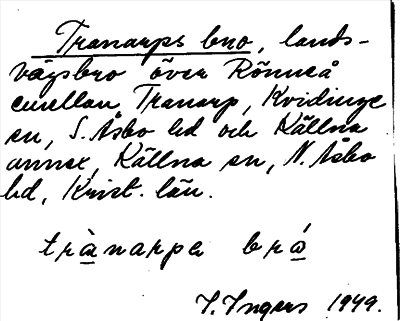 Tranarps bro, lands-
vägsbro över Rönneå
emellan Tranarp, Kvidinge
sn, S. Åsbo hd och Källna
annex, Källna sn, N. Åsbo
hd, Krist. län.
trànarps brá
I. Ingers 1949.